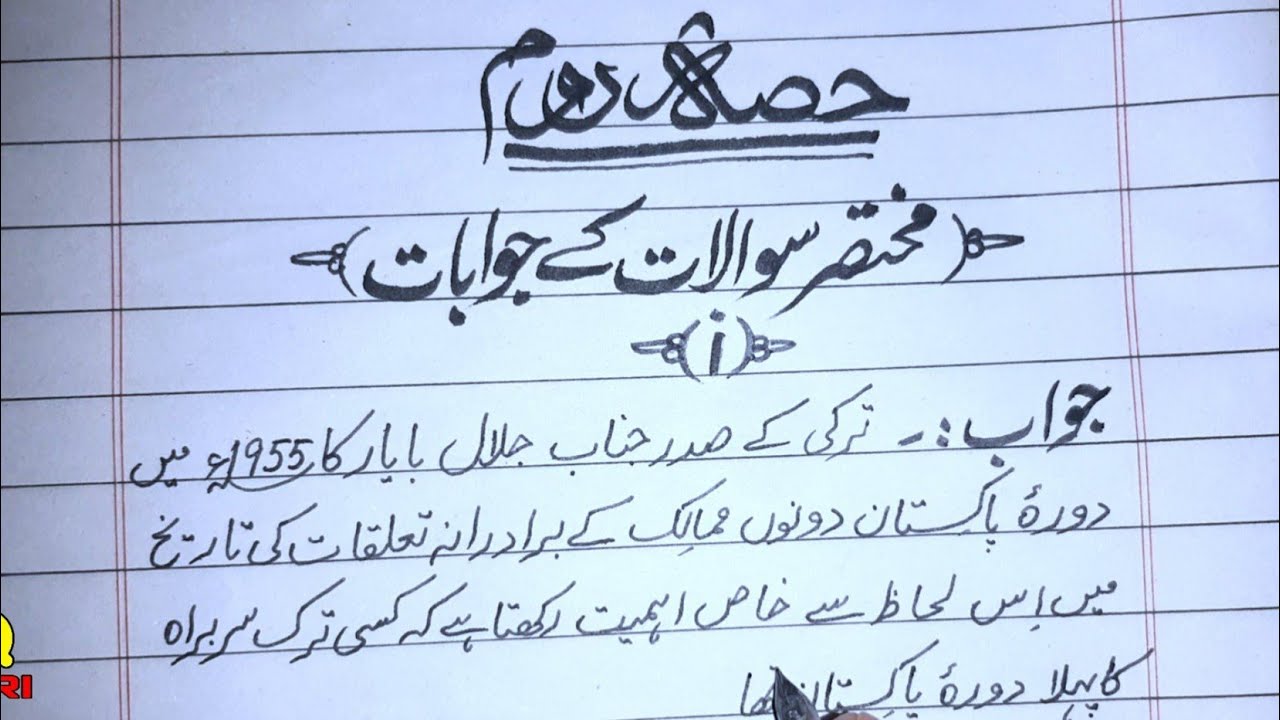 حصہ دوم
(مختصر سوالات کے جوابات)
(i)
جواب:۔ ترکی کے صدر جناب جلال بایار کا 1955ء میں
دورۂ پاکستان دونوں ممالک کے برادرانہ تعلقات کی تاریخ
میں اِس لحاظ سے خاص اہمیت رکھتا ہے کہ کسی ترک سربراہ
کا پہلا دورۂ پاکستان تھا
RI